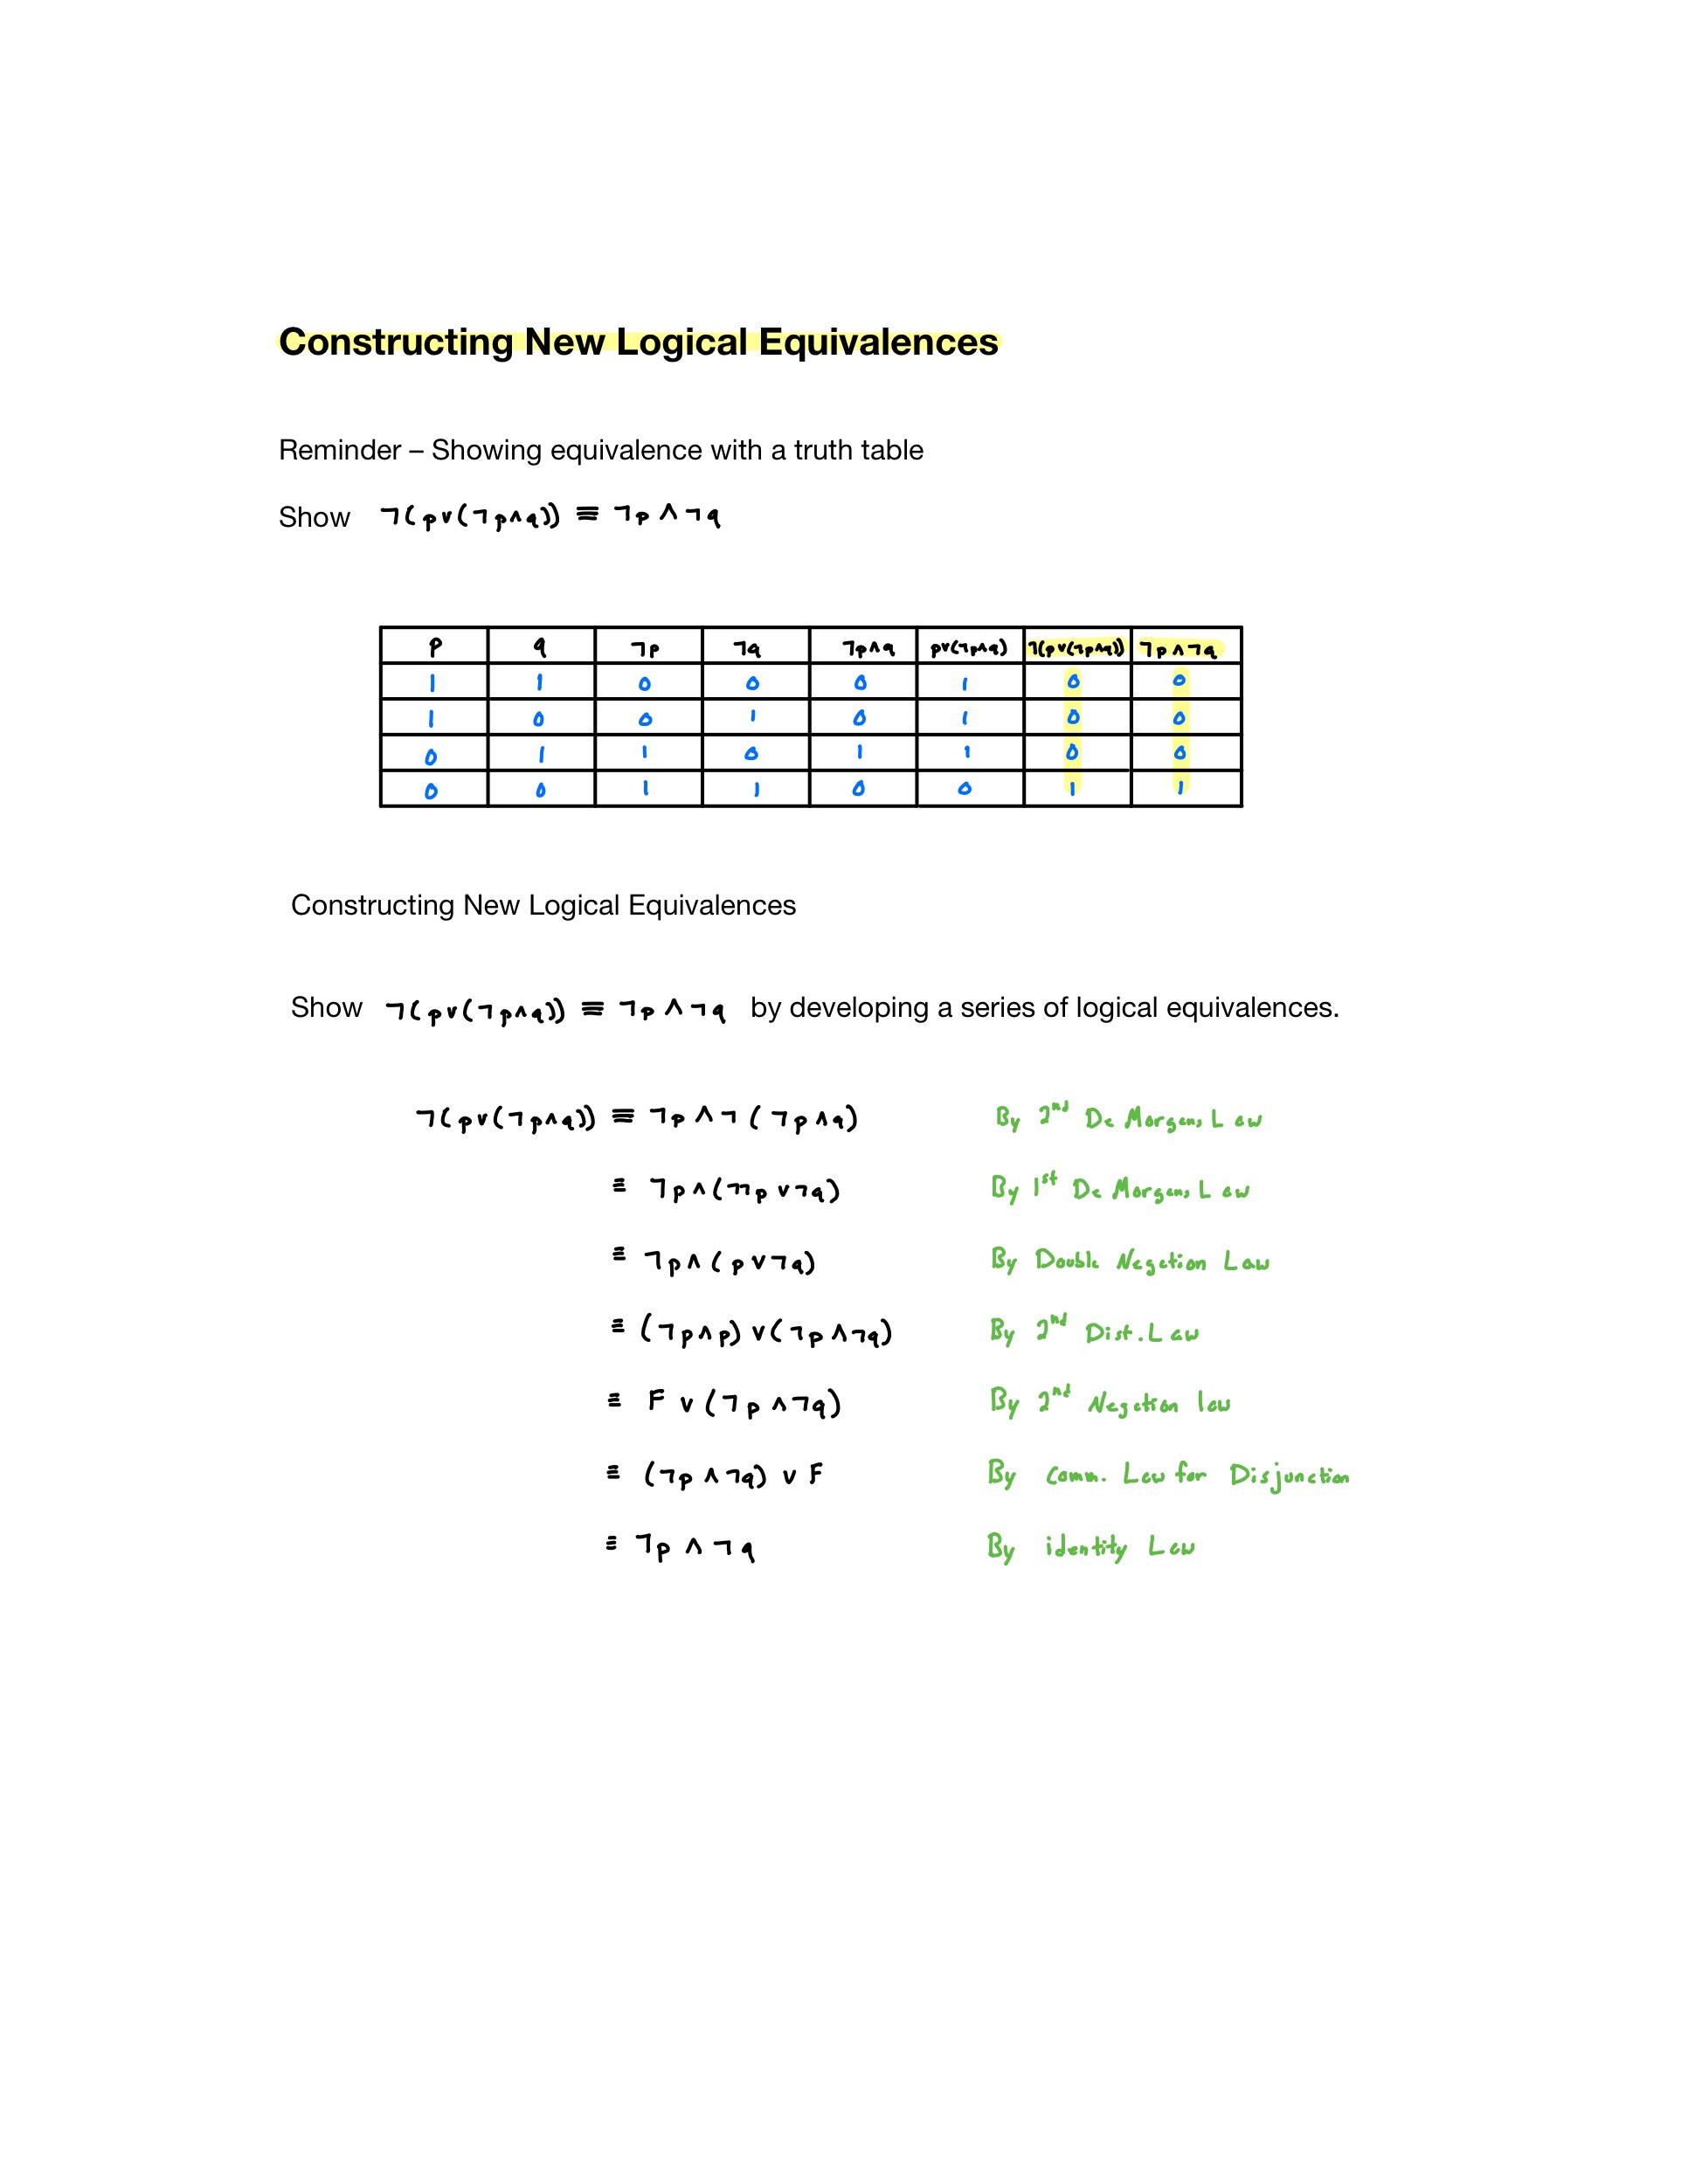 Constructing New Logical Equivalences
Reminder – Showing equivalence with a truth table
Show ¬(p∨(¬p∧q)) ≡ ¬p∧¬q
p q ¬p ¬q ¬p∧q p∨(¬p∧q) ¬(p∨(¬p∧q)) ¬p∧¬q
1 1 0 0 0 1 0 0
1 0 0 1 0 1 0 0
0 1 1 0 1 1 0 0
0 0 1 1 0 0 1 1
Constructing New Logical Equivalences
Show ¬(p∨(¬p∧q)) ≡ ¬p∧¬q by developing a series of logical equivalences.
¬(p∨(¬p∧q)) ≡ ¬p∧¬(¬p∧q) By 2nd De Morgans Law
≡ ¬p∧(¬¬p∨¬q) By 1st De Morgans Law
≡ ¬p∧(p∨¬q) By Double Negation Law
≡ (¬p∧p)∨(¬p∧¬q) By 2nd Dist. Law
≡ F∨(¬p∧¬q) By 2nd Negation law
≡ (¬p∧¬q)∨F By Comm. Law for Disjunction
≡ ¬p∧¬q By identity Law